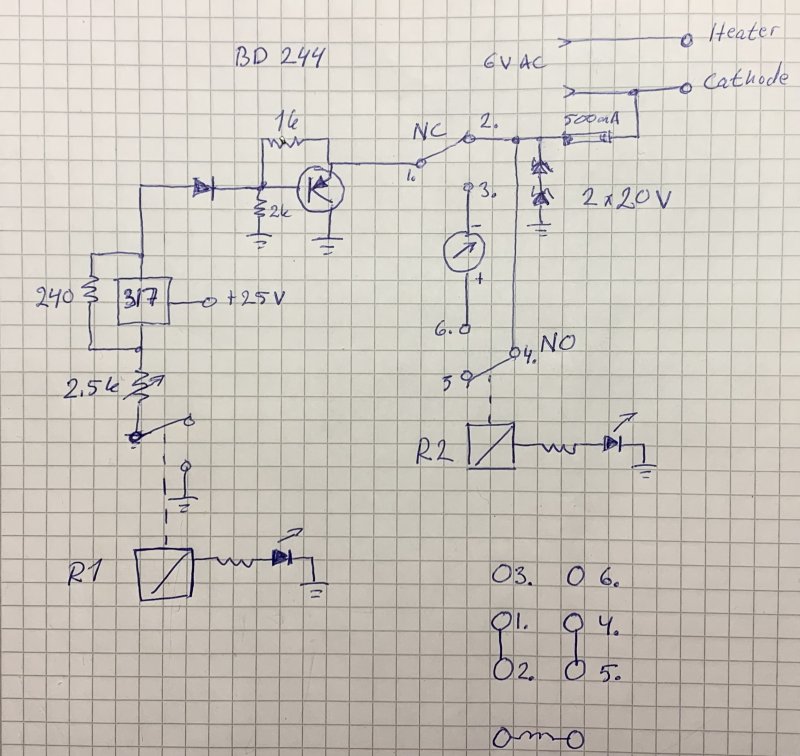 BD 244
Heater
6V AC
Cathode
1k
NC
2.
500mA
1.
3.
2k
2x20V
-
240
317
+25V
+
6.
4.
NO
2.5k
5
R2
R1
3.
6.
1.
4.
2.
5.